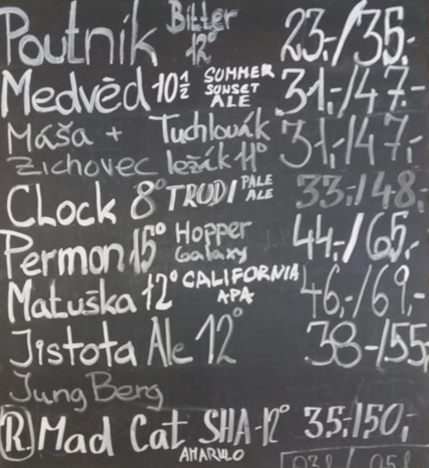 Poutník Bitter 12° 23,-/35,-
Medvěd 10½ SUMMER SUNSET ALE 31,-/47,-
Máša + Tuchlovák 31,-/47,-
Zichovec ležák 11°
CLock 8° TRUDI PALE ALE 33,-/48,-
Permon 15° Hopper Galaxy 44,-/65,-
Matuška 12° CALIFORNIA APA 46,-/69,-
Jistota Ale 12° 38-/55
Jung Berg
R. Mad Cat SHA-12° 35,-/50,-
AMARILLO
0,3 l / 0,5 l